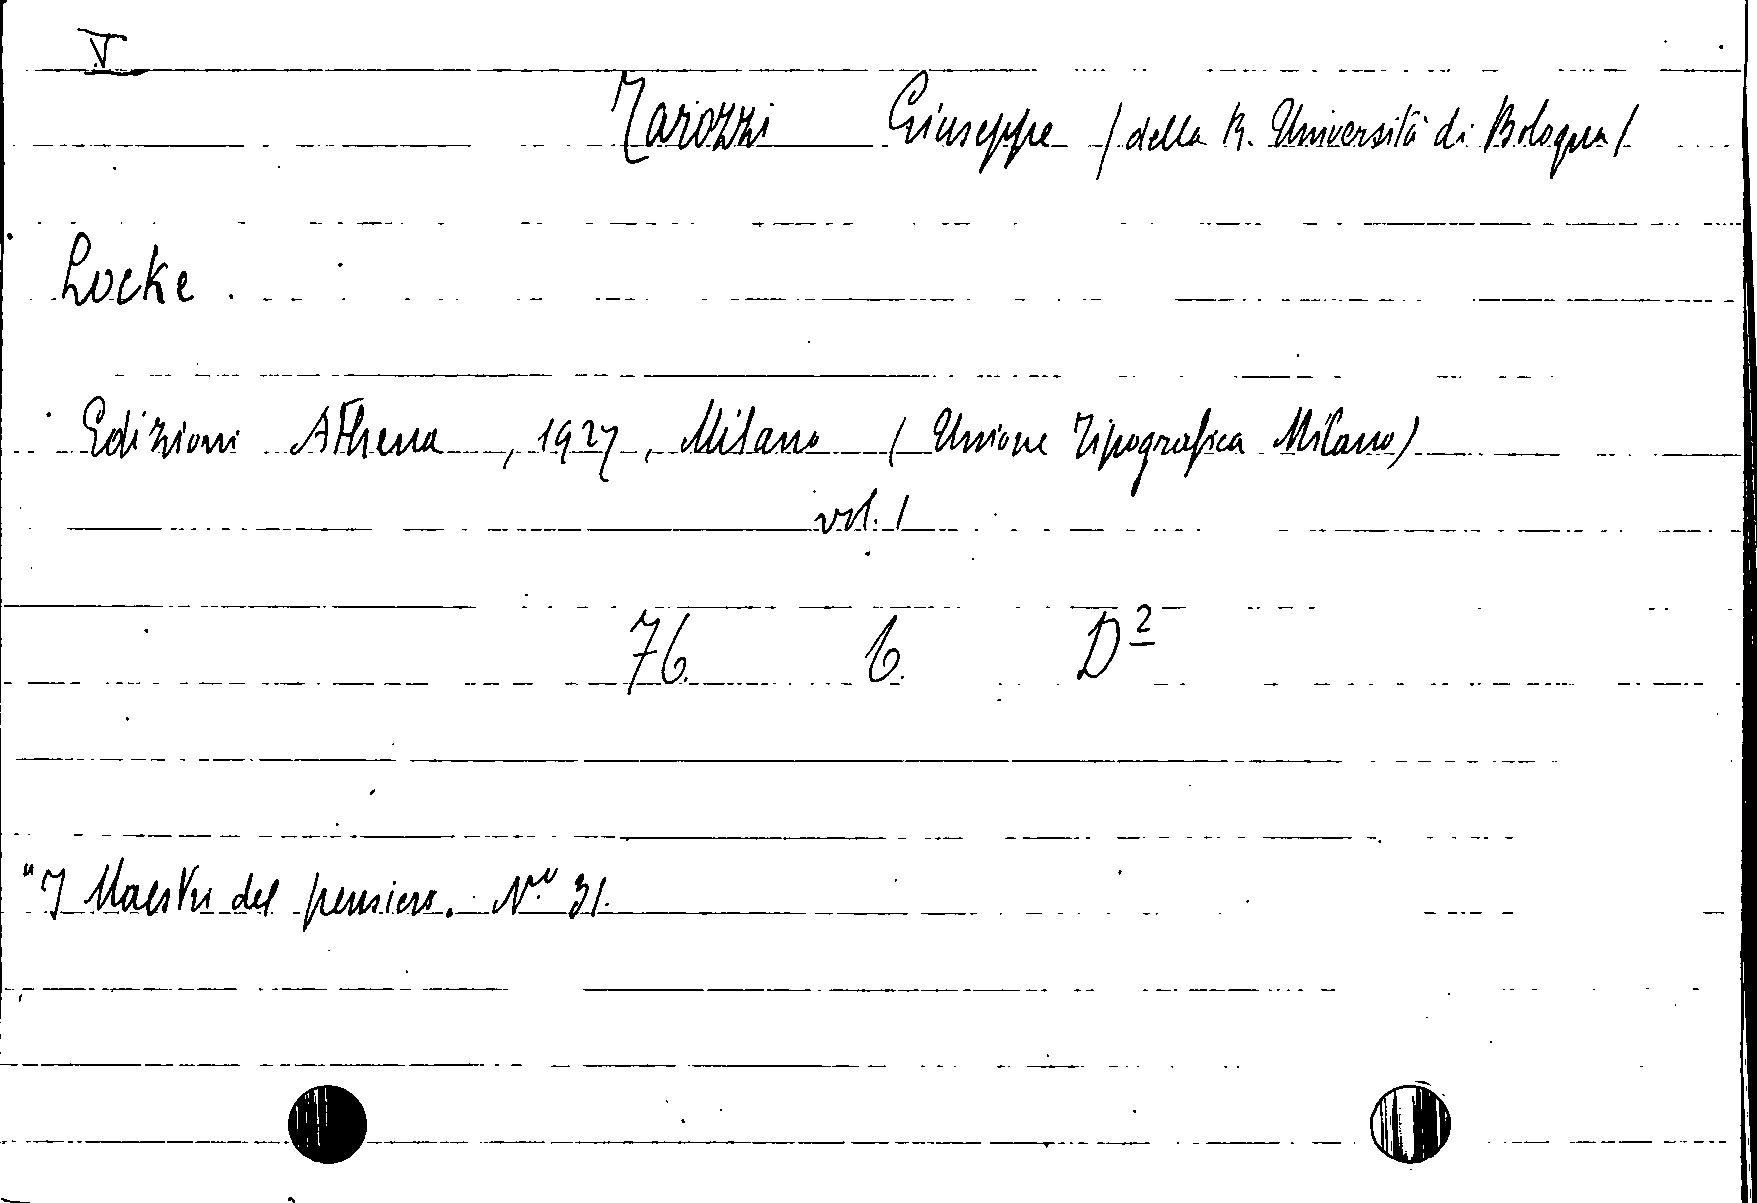 V
Tarozzi Giuseppe (della R. Università di Bologna)
Locke.
Edizioni Athena, 1927, Milano (Unione Tipografica Milano)
vol. 1
76. 6. D2
"I Maestri del pensiero. No 31.